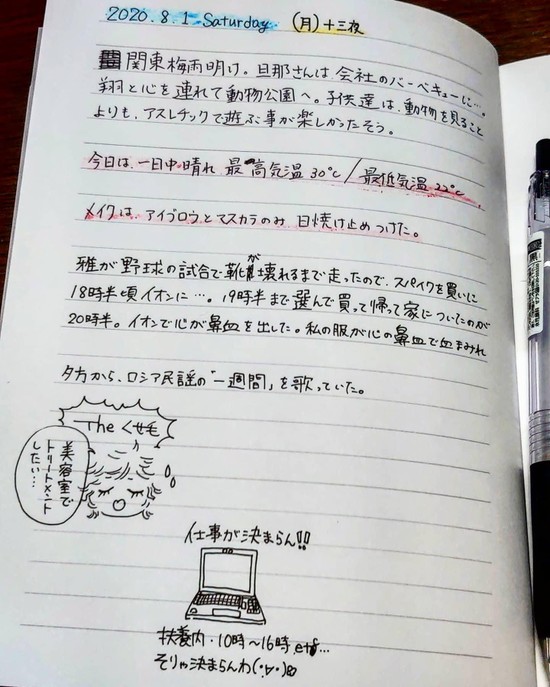 2020.8.1 Saturday (月)十三夜
関東梅雨明け。旦那さんは会社のバーベキューに…。
翔と心を連れて動物公園へ。子供達は、動物を見ること
よりも、アスレチックで遊ぶ事が楽しかったそう。
今日は、一日中晴れ 最高気温30℃/最低気温22℃。
メイクは、アイブロウとマスカラのみ 日焼け止めつけた。
雅が野球の試合で靴が壊れるまで走ったので、スパイクを買いに
18時半頃イオンに…。19時半まで選んで買って帰って家についたのが
20時半。イオンで心が鼻血を出した。私の服が心の鼻血で血まみれ
夕方から、ロシア民謡の「一週間」を歌っていた。
The くせ毛
美容室で
トリートメント
したい…
仕事が決まらん!!
扶養内・10時~16時
そりゃ決まらんわ